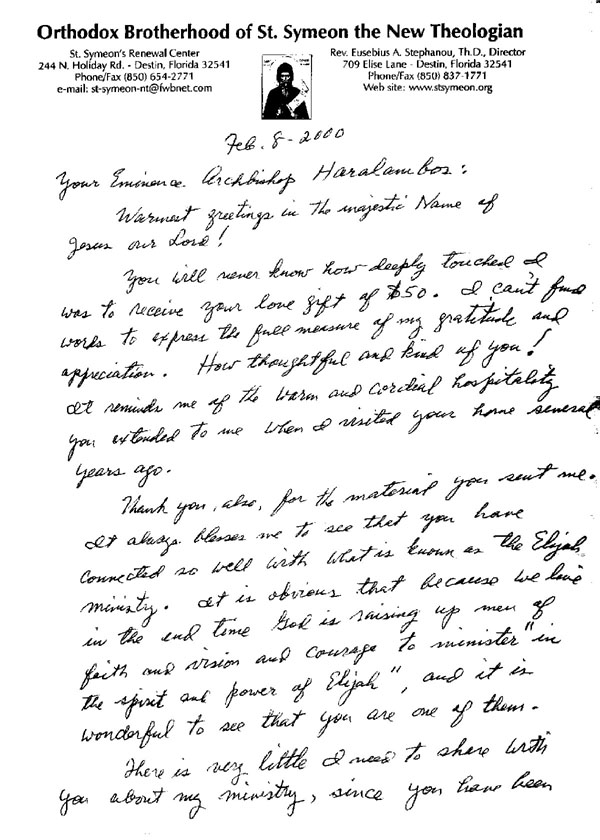 Orthodox Brotherhood of St. Symeon the New Theologian
St. Symeon's Renewal Center
244 N. Holiday Rd. - Destin, Florida 32541
Phone/Fax (850) 654-2771
e-mail: st-symeon-nt@fwbnet.com
Rev. Eusebius A. Stephanou, Th.D., Director
709 Elise Lane - Destin, Florida 32541
Phone/Fax (850) 837-1771
Web site: www.stsymeon.org
Feb. 8 - 2000
Your Eminence Archbishop Haralambos:
Warmest greetings in the majestic Name of
Jesus our Lord!
You will never know how deeply touched I
was to receive your love gift of $50. I can't find
words to express the full measure of my gratitude and
appreciation. How thoughtful and kind of you!
It reminds me of the warm and cordial hospitality
you extended to me when I visited your home several
years ago.
Thank you, also, for the material you sent me.
It always blesses me to see that you have
connected so well with what is known as the Elijah
ministry. It is obvious that because we live
in the end time God is raising up men of
faith and vision and courage to minister "in
the spirit and power of Elijah", and it is
wonderful to see that you are one of them.
There is very little I need to share with
you about my ministry, since you have been